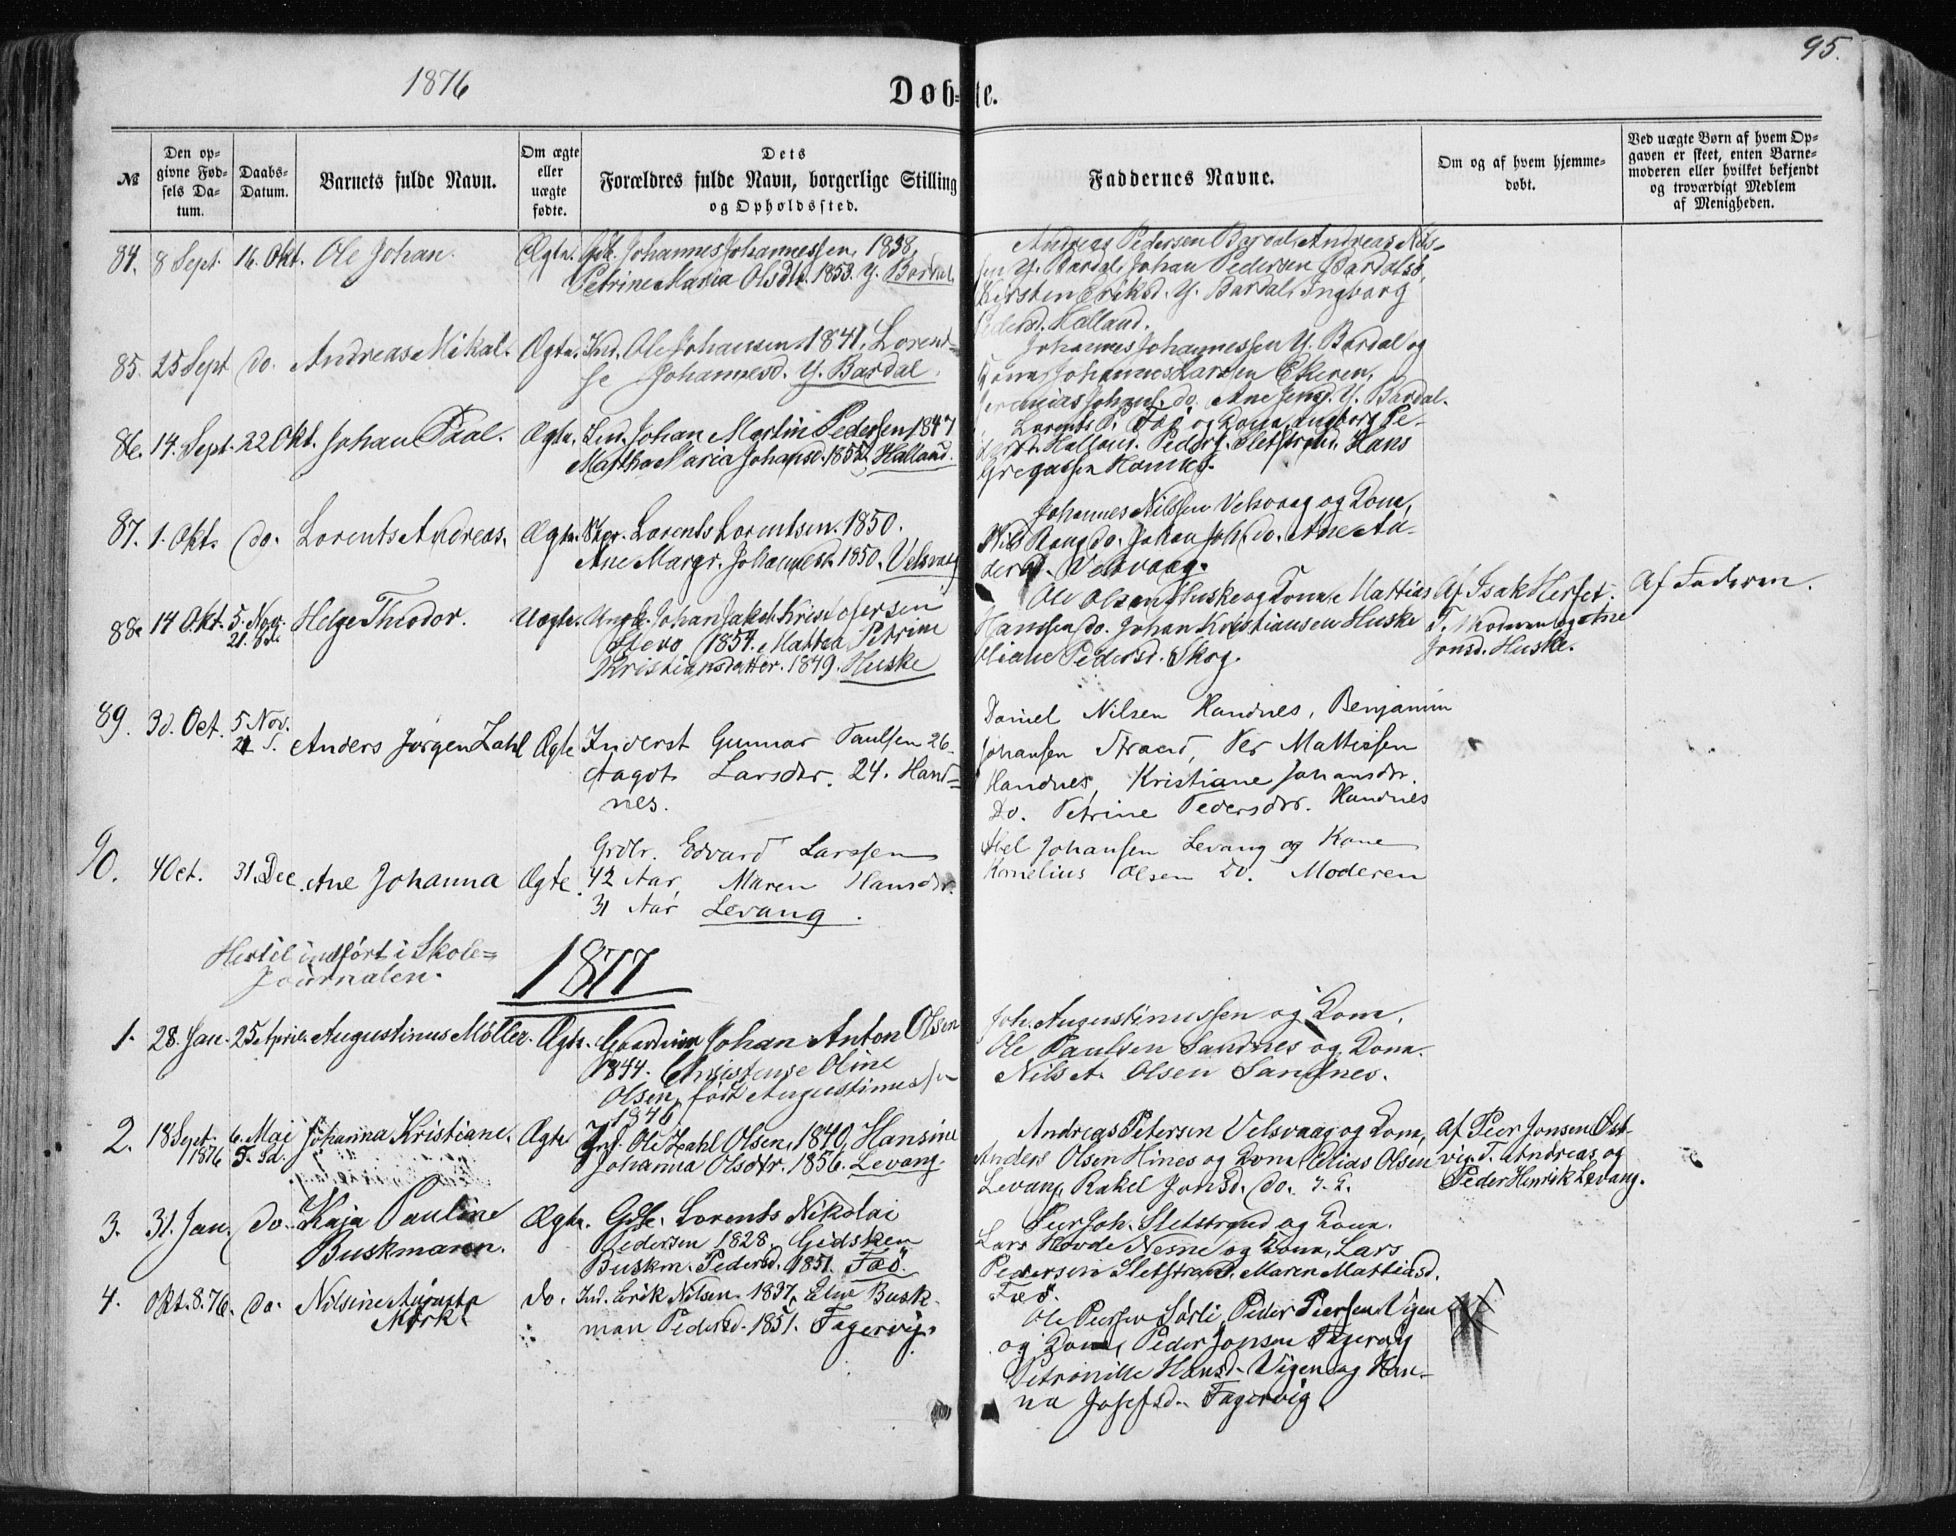 95.
1876
Døb=te.
№
Den op-
givne Fød-
sels Da-
tum.
Daabs-
Datum.
Barnets fulde Navn.
Om ægte
eller
uægte
fødte.
Dets
Forældres fulde Navn, borgerlige Stilling
og Opholdssted.
Faddernes Navne.
Om og af hvem hjemme-
døbt.
Ved uægte Børn af hvem Op-
gaven er skeet, enten Barne-
moderen eller hvilket bekjendt
og troværdigt Medlem
af Menigheden.
84. 8 Sept. 16. Okt. Ole Johan. Ægte. Johannes Johannessen, 1838,
Petrine Maria Olsdtr. 1853. Y. Bardal.
Andreas Pedersen Bardal, Andreas Nils-
sen Y. Bardal, Johan Pedersen Bardalsø,
Kirsten Eriksd. Y. Bardal, Ingborg
Pedersd. Halland.
85. 25 Sept do. Andreas Mikal. Ægte. Ind. Ole Johansen, 1841, Lorent-
se Johannesd. Y. Bardal.
Johannes Johannessen Y. Bardal og
Kona, Johannes Larsen Ekeren,
do. Ane Jensd. Y. Bardal.
86. 14. Sept. 22 Okt. Johan Paal. Ægte. Ind. Johan Martin Pedersen, 1847
Martha Maria Johansd. 1852, Halland.
Lorents P. Fæø og Kona, Ingborg Pe-
dersd. Halland. Peder J. Sletstrand, Hans
Gregussen Komnes.
87. 1. Okt. do. Lorents Andreas. Ægte. Lorents Lorentsen. 1850.
Ane Margr. Johannesd. 1850. Velsvaag
Johannes Nilssen Velsvaag og Kona,
Nils do. Johan Joh. do. Ane An-
dersd. Velsvaag.
88. 14 Okt. 5. Nov. Helge Theodor. Uægte. Ungk. Johan Jakob Kristofersen
21.
1854. Martha Petrine
Kristiansdatter. 1849. Huske
Ole Olsen Huske og Kona, Mattias
Hanssen do. Johan Kristiansen Huske
Oliane Pedersd. Skog.
Af Isak Herset.
T. Moderen og Ane
Jonsd. Huske.
Af Faderen.
89. 30. Oct. 5. Nov.
21 T. Anders Jørgen Zahl Ægte Inderst Gunnar Paulsen 26
Aagot Larsdtr. 24. Hand=
nes.
Daniel Nilsen Handnes, Benjamin
Johansen Strand, Per Mattissen
Handnes, Kristiane Johansdtr.
Do. Petrine Pedersdtr. Handnes
90. 4 Oct. 31. Dec. Ane Johanna Ægte. Grdbr. Edvard Larssen
42 Aar, Maren Hansdtr.
31 Aar Levang.
Abel Johansen Levang og Kone
Kornelius Olsen Do. Moderen
Hertil indført i Skole=
Journalen.
1877
1. 28. Jan. 25 April. Augustinus Møller. Ægte. Gaardmann Johan Anton Olsen
1844. Christense Oline
Olsen, født Augustinussen
1846
Joh. Augustinussen og Kona.
Ole Paulsen Sandnes og Kona.
Nils A. Olsen Sandnes.
2. 18 Sept. 6. Mai Johanna Kristiane. Ægte. Ind. Ole Zahl Olsen, 1840, Hansine
1876 Johanna Olsdtr. 1856. Levang.
Andreas Petersen Velsvaag og Kona,
Anders Olsen Hines og Kona, Elias Olsen
Levang, Rakel Jonsd. do.
Af Peer Jonsen Øst-
vig. T. Andreas og
Peder Henrik Levang.
3. 31. Jan. do. Kaja Pauline
Buskmaren. Ægte. Lorents Nikolai
Pedersen 1828. Gidsken
Buskm. Pedersd. 1851. Fæø.
Peer Joh. Sletstrand og Kona.
Lars Hovde Nesne og Kona, Lars
Pedersen Sletstrand. Maren Mattiasd.
Fæø.
4. Okt. 8. 76. do. Nilsine Augusta
Mørk. do. Ind. Erik Nilsen. 1837, Elen Busk-
man Pedersd. 1851. Fagervig.
Ole Peersen Sørli, Peder Peersen Vigen
og Kona, Peder Jonsen Fagervig
Petronille Hansd. Vigen og Han-
na Josefsd. Fagervig.